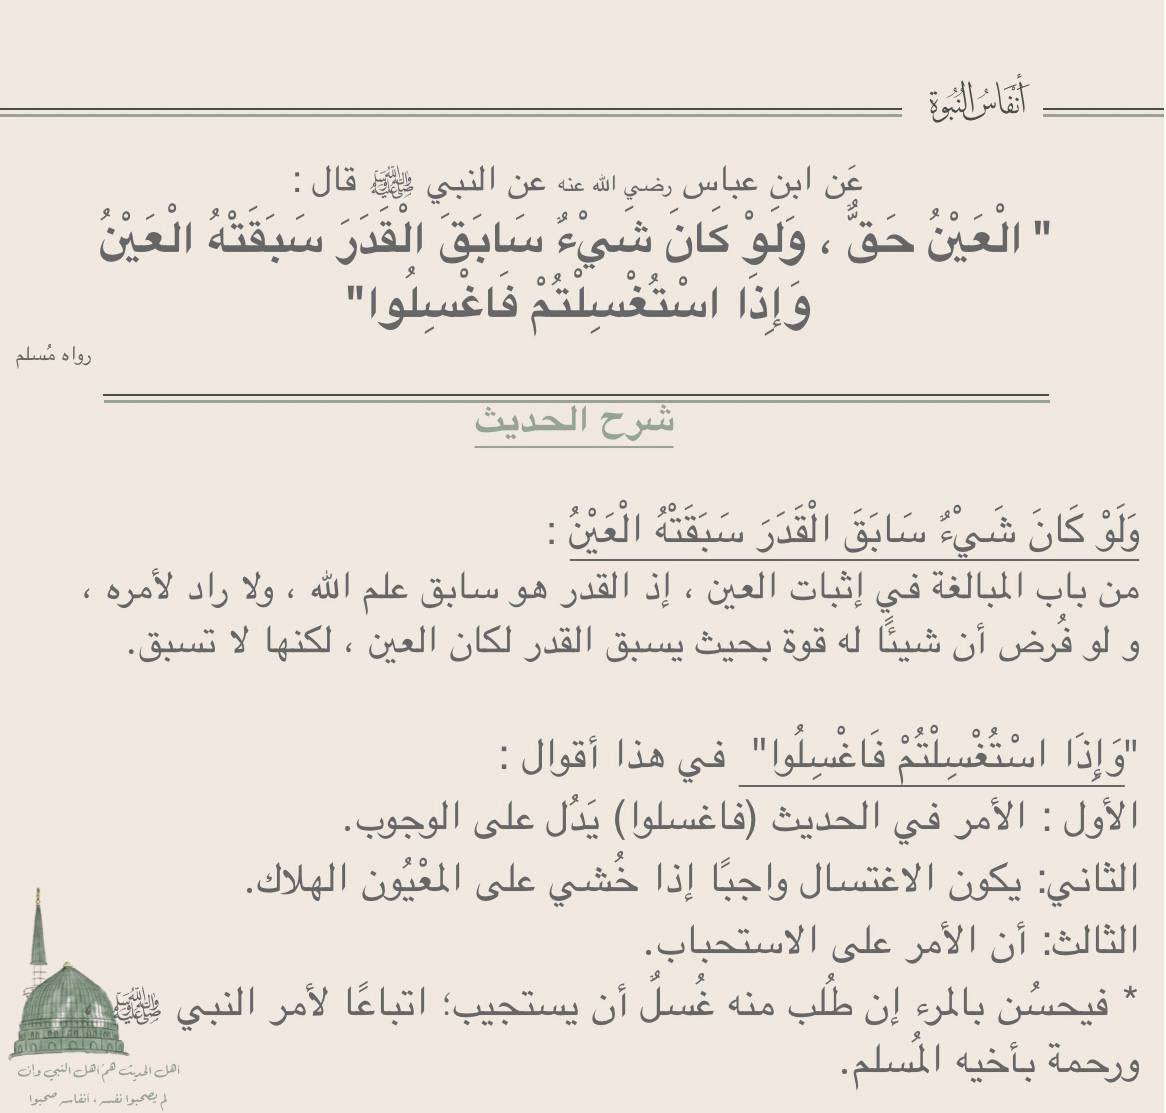 أَنْفَاسُ النُّبُوة
عَن ابنِ عباس رضي الله عنه عن النبي ﷺ قال :
" الْعَيْنُ حَقٌّ ، وَلَوْ كَانَ شَيْءٌ سَابَقَ الْقَدَرَ سَبَقَتْهُ الْعَيْنُ
وَإِذَا اسْتُغْسِلْتُمْ فَاغْسِلُوا"
رواه مُسلم
شرح الحديث
وَلَوْ كَانَ شَيْءٌ سَابَقَ الْقَدَرَ سَبَقَتْهُ الْعَيْنُ :
من باب المبالغة في إثبات العين ، إذ القدر هو سابق علم الله ، ولا راد لأمره ،
و لو فُرض أن شيئًا له قوة بحيث يسبق القدر لكان العين ، لكنها لا تسبق.
"وَإِذَا اسْتُغْسِلْتُمْ فَاغْسِلُوا" في هذا أقوال :
الأول : الأمر في الحديث (فاغسلوا) يَدُل على الوجوب.
الثاني: يكون الاغتسال واجبًا إذا خُشي على المعْيُون الهلاك.
الثالث: أن الأمر على الاستحباب.
* فيحسُن بالمرء إن طُلب منه غُسلٌ أن يستجيب؛ اتباعًا لأمر النبي ﷺ
ورحمة بأخيه المُسلم.
اهل الحديث هم اهل النبي وان
لم يصحبوا نفسه ، انفاسه صحبوا